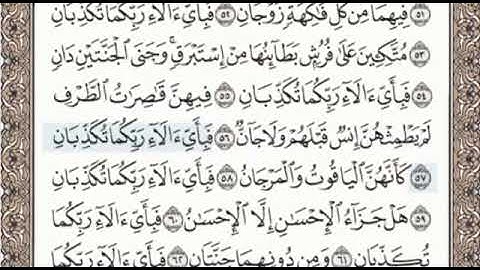 فِيهِمَا مِن كُلِّ فَاكِهَةٍ زَوْجَانِ ٥٢ فَبِأَيِّ ءَالَاءِ رَبِّكُمَا تُكَذِّبَانِ
٥٣ مُتَّكِـِٔينَ عَلَىٰ فُرُشٍۭ بَطَآئِنُهَا مِنْ إِسْتَبْرَقٍ ۚ وَجَنَى ٱلْجَنَّتَيْنِ دَانٍ
٥٤ فَبِأَيِّ ءَالَاءِ رَبِّكُمَا تُكَذِّبَانِ ٥٥ فِيهِنَّ قَٰصِرَٰتُ ٱلطَّرْفِ
لَمْ يَطْمِثْهُنَّ إِنسٌ قَبْلَهُمْ وَلَا جَآنٌّ ٥٦ فَبِأَيِّ ءَالَاءِ رَبِّكُمَا تُكَذِّبَانِ
٥٧ كَأَنَّهُنَّ ٱلْيَاقُوتُ وَٱلْمَرْجَانُ ٥٨ فَبِأَيِّ ءَالَاءِ رَبِّكُمَا تُكَذِّبَانِ
٥٩ هَلْ جَزَآءُ ٱلْإِحْسَٰنِ إِلَّا ٱلْإِحْسَٰنُ ٦٠ فَبِأَيِّ ءَالَاءِ رَبِّكُمَا
تُكَذِّبَانِ ٦١ وَمِن دُونِهِمَا جَنَّتَانِ ٦٢ فَبِأَيِّ ءَالَاءِ رَبِّكُمَا